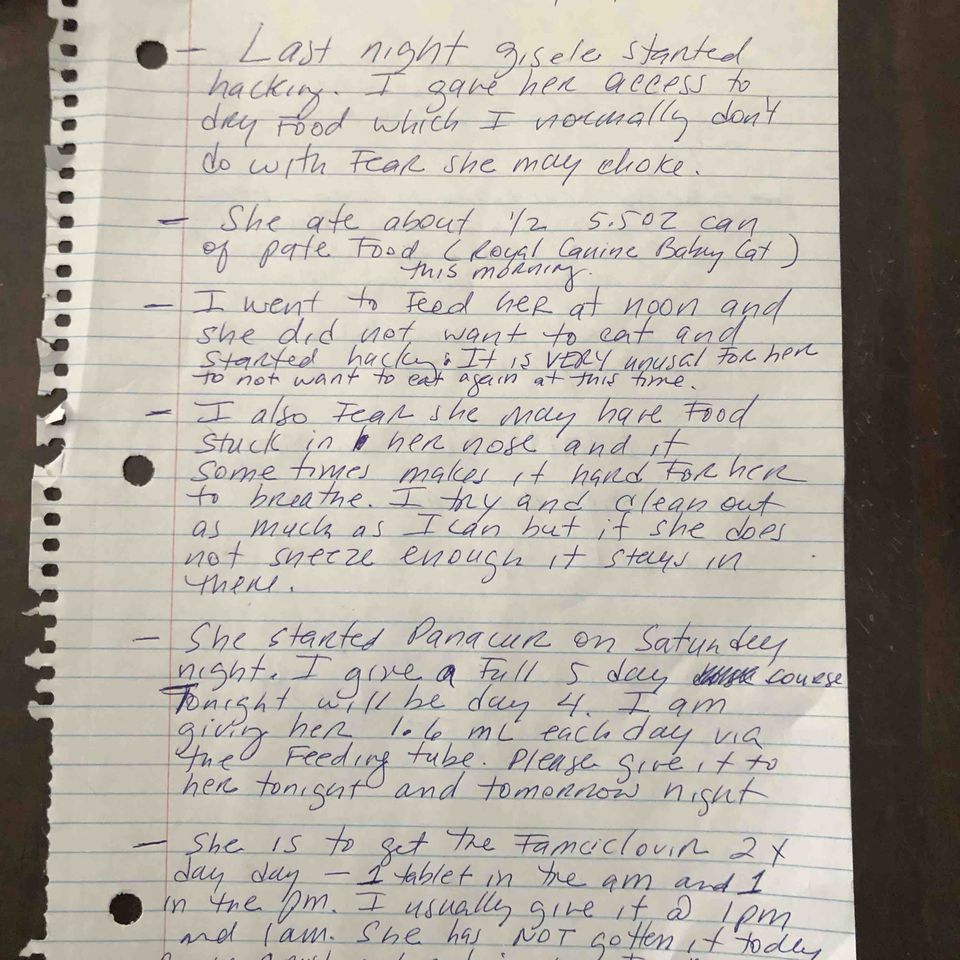 - Last night gisele started
hacking. I gave her access to
dry food which I normally don't
do with fear she may choke.
- She ate about 1/2 5.5oz can
of pate food (Royal Canine Baby Cat)
this morning.
- I went to feed her at noon and
she did not want to eat and
started hacky. It is VERY unusal for her
to not want to eat again at this time.
- I also fear she may have food
stuck in her nose and it
some times makes it hard for her
to breathe. I try and clean out
as much as I can but if she does
not sneeze enough it stays in
there.
- She started Panacur on Saturday
night. I give a full 5 day course
Tonight will be day 4. I am
giving her 1.6 mL each day via
the feeding tube. Please give it to
her tonight and tomorrow night
- She is to get the Famciclovir 2x
day day - 1 tablet in the am and 1
in the pm. I usually give it @ 1pm
and 1am. She has NOT gotten it today